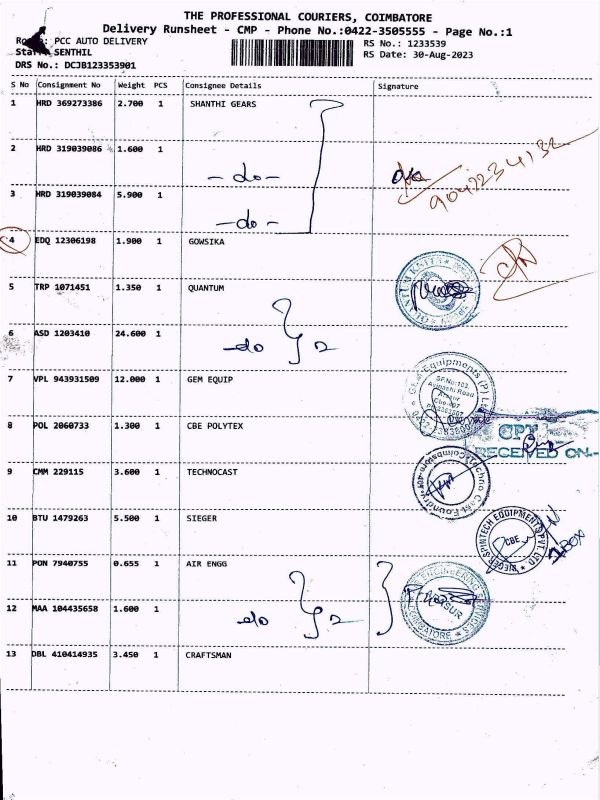 THE PROFESSIONAL COURIERS, COIMBATORE
Delivery Runsheet - CMP - Phone No.:0422-3505555 - Page No.:1
PCC AUTO DELIVERY
RS No.: 1233539
SENTHIL
RS Date: 30-Aug-2023
DRS No.: DCJB123353901
S No Consignment No Weight PCS Consignee Details Signature
1 HRD 369273386 2.700 1 SHANTHI GEARS
2 HRD 319039086 1.600 1
-do-
9042234132
3 HRD 319039084 5.900 1
-do-
4 EDQ 12306198 1.900 1 GOWSIKA
5 TRP 1071451 1.350 1 QUANTUM
6 ASD 1203410 24.600 1
-do 2
7 VPL 943931509 12.000 1 GEM EQUIP
Equipments (P) Ltd
SF.No:103,
Avinashi Road
8 POL 2060733 1.300 1 CBE POLYTEX
CPT
RECEIVED ON
9 CMM 229115 3.600 1 TECHNOCAST
10 BTU 1479263 5.500 1 SIEGER
SIEGER SPINTECH EQUIPMENTS PVT LTD
CBE
1 BOX
11 PON 7940755 0.655 1 AIR ENGG
ENGINEERING SERVICES
COIMBATORE
12 MAA 104435658 1.600 1
-do 2
13 DBL 410414935 3.450 1 CRAFTSMAN